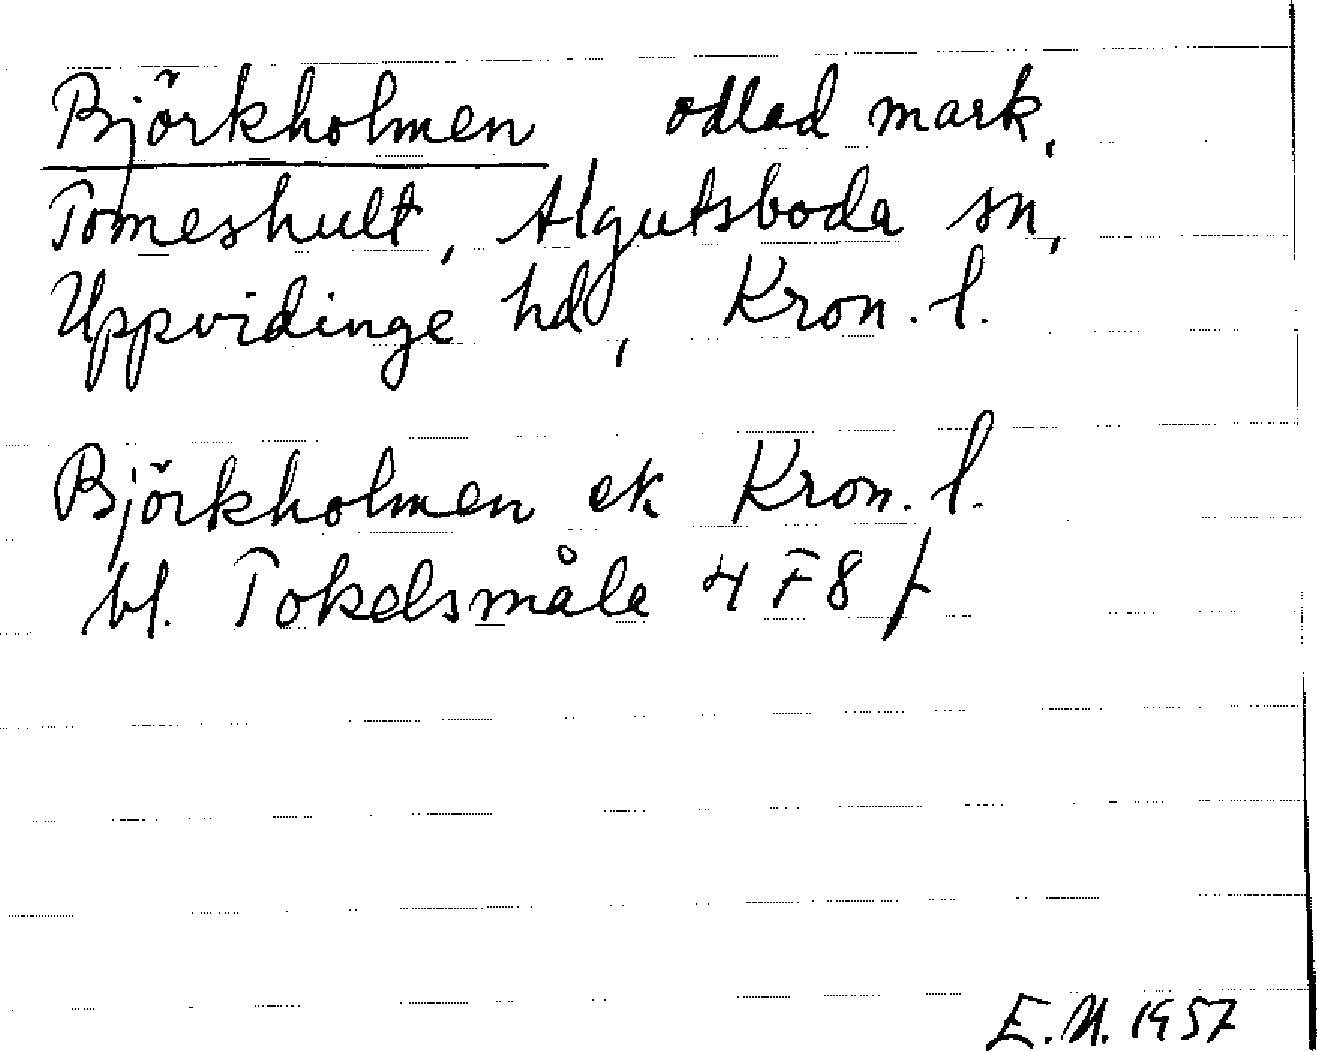 Björkholmen odlad mark,
Tomeshult, Algutsboda sn,
Uppvidinge hd, Kron. l.
Björkholmen ek Kron. l.
bl. Tokelsmåla 4 F 8 f
E.N. 1957